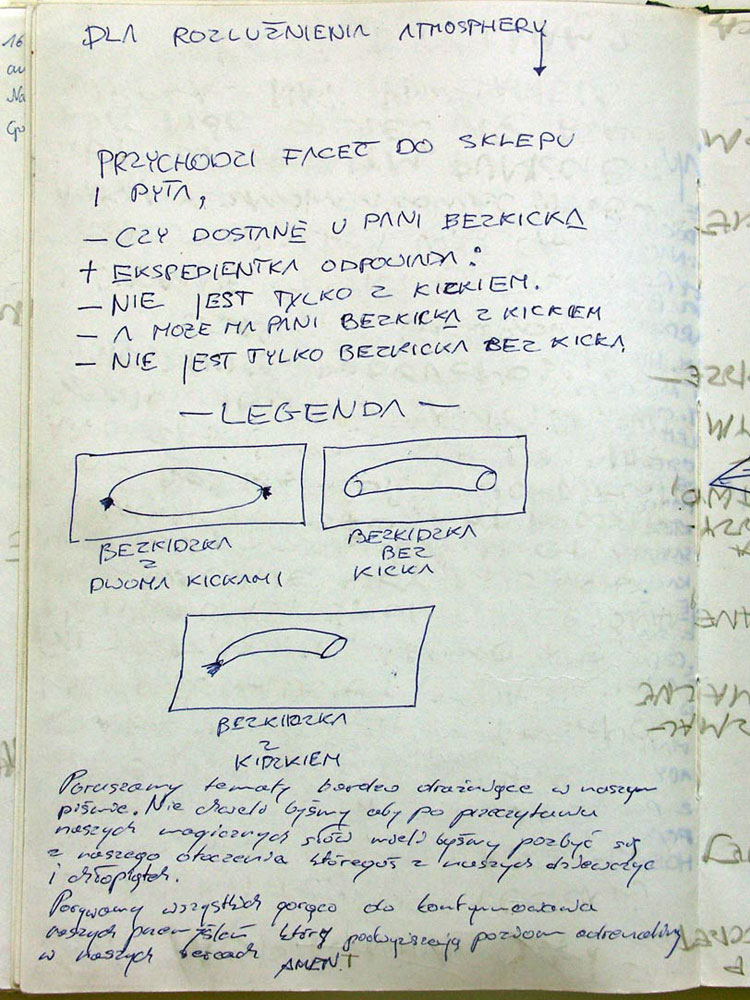 DLA ROZLUŹNIENIA ATMOSPHERY
PRZYCHODZI FACET DO SKLEPU
I PYTA,
— CZY DOSTANĘ U PANI BEZKICKA
+ EKSPEDIENTKA ODPOWIADA:
— NIE JEST TYLKO Z KICKIEM.
— A MOŻE MA PANI BEZKICKA Z KICKIEM
— NIE JEST TYLKO BEZKICKA BEZ KICKA,
— LEGENDA —
BEZKIDZKA
Z
DWOMA KICKAMI
BEZKIDZKA
BEZ
KICKA
BEZKIDZKA
Z
KIDZKIEM
Poruszamy tematy bardzo drażniące w naszym
piśmie. Nie chcieli byśmy aby po przeczytaniu
naszych magicznych słów mieli byśmy pozbyć się
z naszego otoczenia któregoś z naszych dziewczyc
i chłopiątek.
Porywamy wszystkich gorąco do kontynuowania
naszych przemyśleń który podwyższają poziom adrenaliny
w naszych sercach
AMENT
16